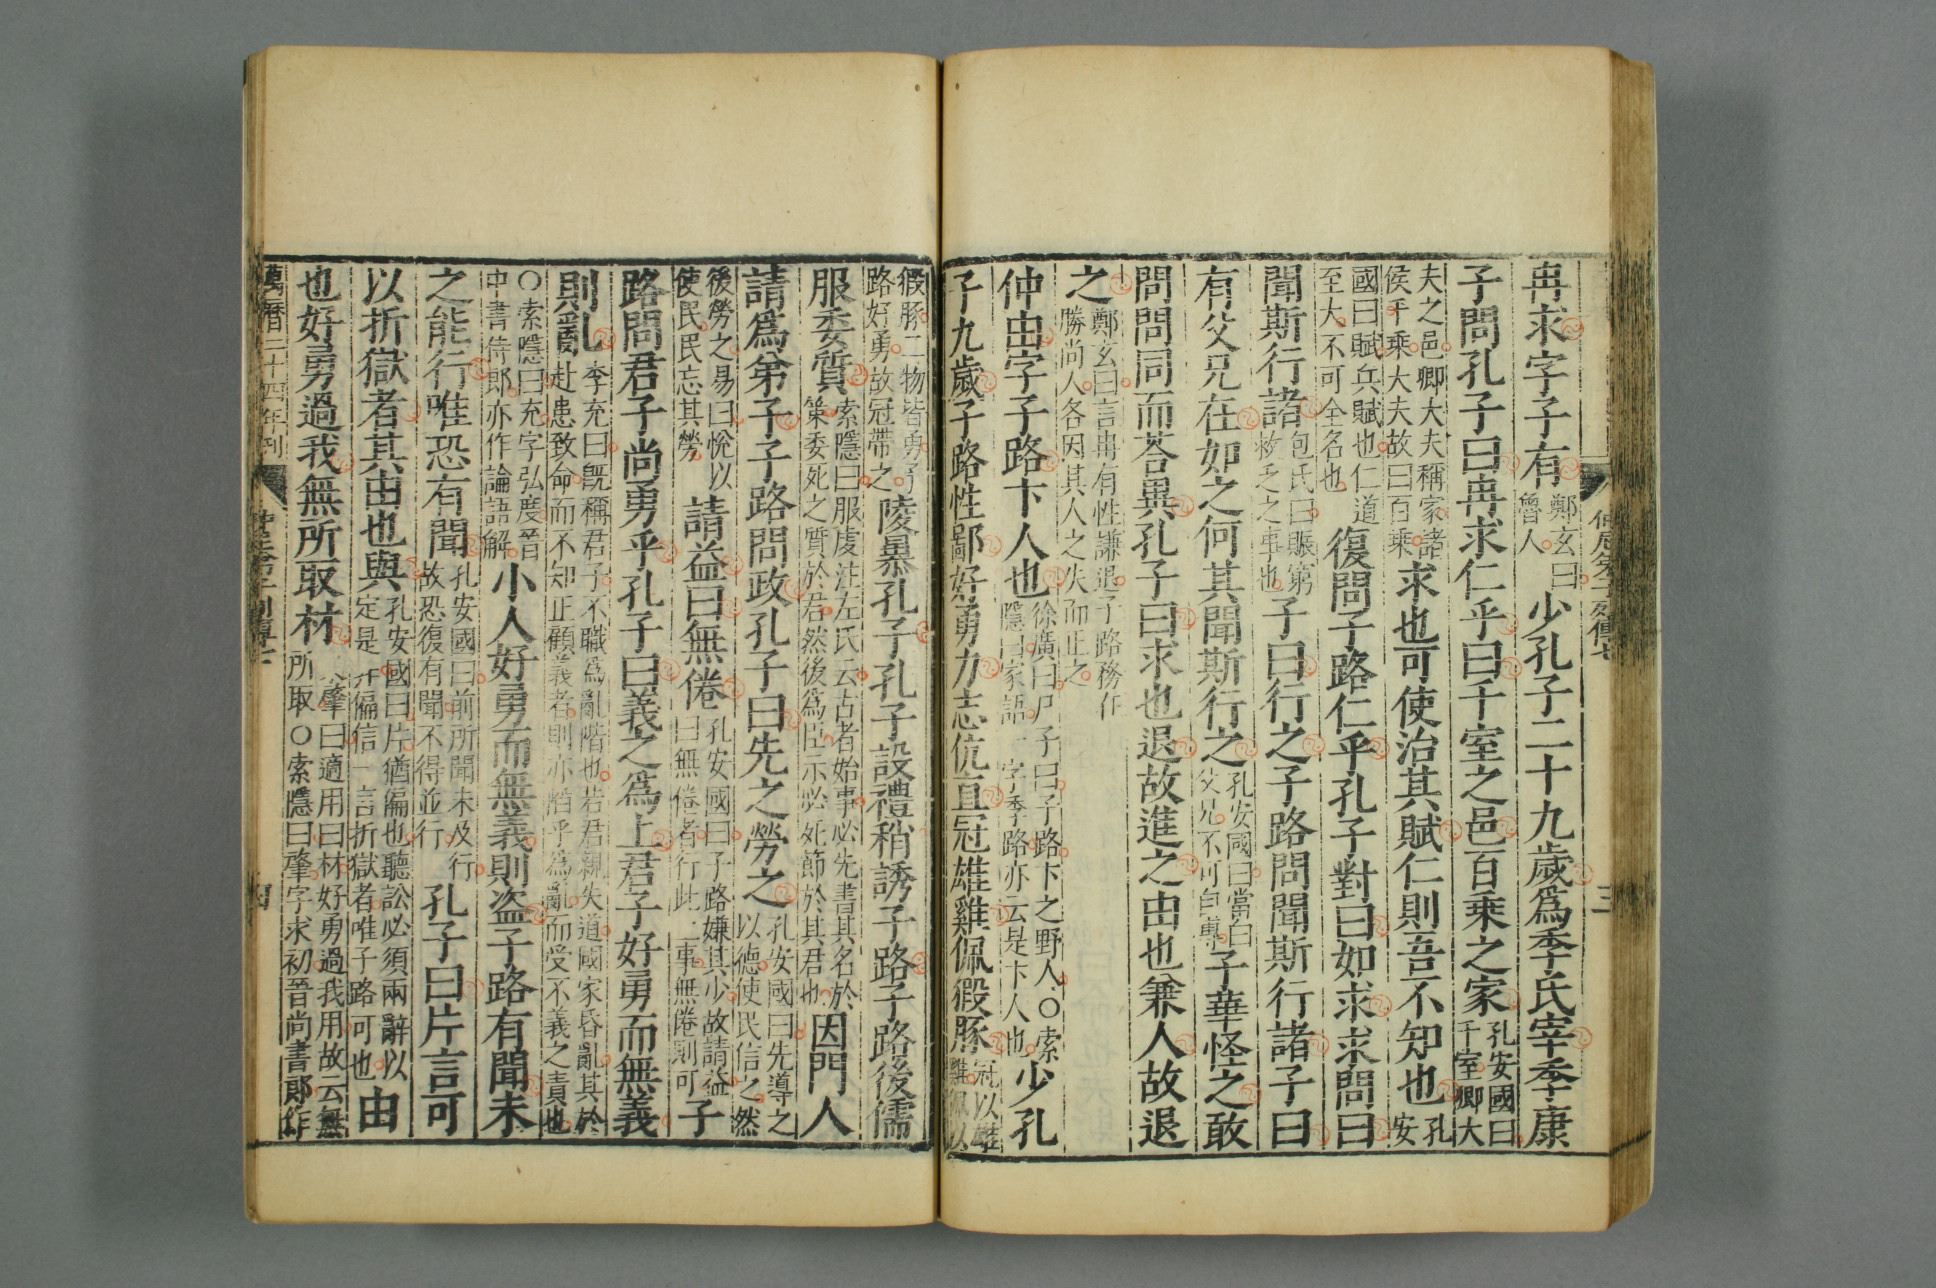 冉求字子有鄭玄曰魯人少孔子二十九歲爲季氏宰季康
子問孔子曰冉求仁乎曰千室之邑百乘之家孔安國曰千室卿大
夫之邑卿大夫稱家諸侯千乘大夫故曰百乘求也可使治其賦仁則吾不知也孔安
國曰賦兵賦也仁道至大不可全名也復問子路仁乎孔子對曰如求求問曰
聞斯行諸包氏曰賑窮救乏之事也子曰行之子路問聞斯行諸子曰
有父兄在如之何其聞斯行之孔安國曰當白父兄不可自專子華怪之敢
問問同而荅異孔子曰求也退故進之由也兼人故退
之鄭玄曰言冉有性謙退子路務在勝尚人各因其人之失而正之
仲由字子路卞人也徐廣曰尸子曰子路卞之野人○索隱曰家語一字季路亦云是卞人也少孔
子九歲子路性鄙好勇力志伉直冠雄雞佩豭豚冠以雄雞佩以
豭豚二物皆勇子路好勇故冠帶之陵暴孔子孔子設禮稍誘子路子路後儒
服委質索隱曰服虔注左氏云古者始事必先書其名於策委死之質於君然後爲臣示必死節於其君也因門人
請爲弟子子路問政孔子曰先之勞之孔安國曰先導之以德使民信之然
後勞之易曰悅以使民民忘其勞請益曰無倦孔安國曰子路嫌其少故請益曰無倦者行此二事無倦則可子
路問君子尚勇乎孔子曰義之爲上君子好勇而無義
則亂李充曰旣稱君子不職爲亂階也若君親失道國家昏亂其於赴患致命而不知正顧義者則亦䧟乎爲亂而受不義之責也
○索隱曰充字弘度晉中書侍郎亦作論語解小人好勇而無義則盜子路有聞未
之能行唯恐有聞孔安國曰前所聞未及行故恐復有聞不得並行孔子曰片言可
以折獄者其由也與孔安國曰片猶偏也聽訟必須兩辭以定是非偏信一言折獄者唯子路可也由
也好勇過我無所取材肇曰適用曰材好勇過我用故云無所取○索隱曰肇字永初晉尚書郎作
萬曆二十四年刊
四